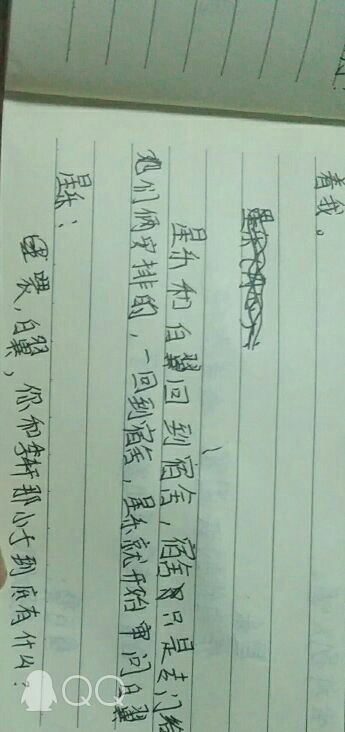 着我。
星乐和白翼回到宿舍，宿舍只是专门给
她们俩安排的，一回到宿舍，星乐就开始审问白翼
星乐：
喂喂，白翼，你和李轩那小子到底有什么，
QQ